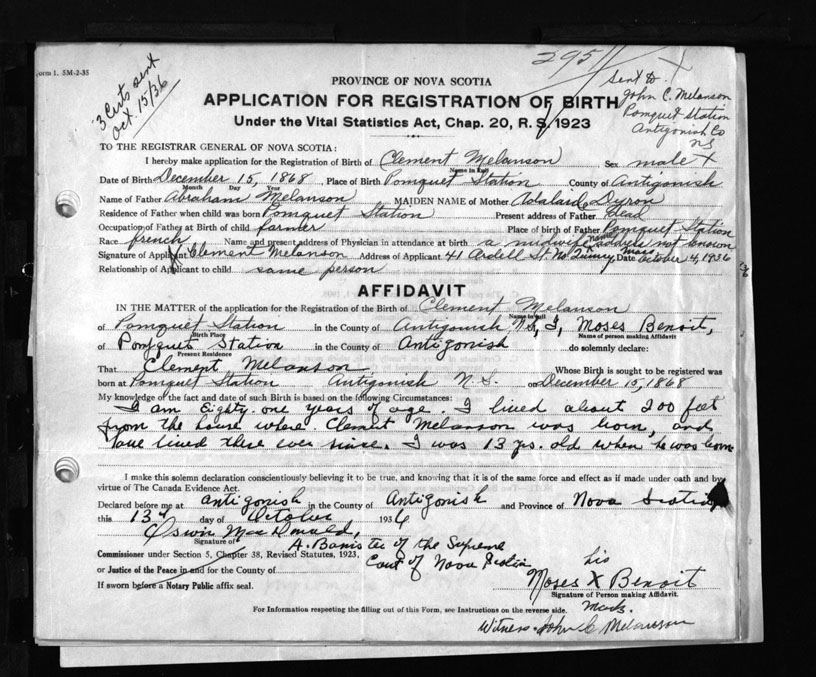 Form 1. 5M-2-35
295
X
3 Certs sent
Oct. 15/36
Sent to
John C. Melanson
Pomquet Station
Antigonish Co
NS
PROVINCE OF NOVA SCOTIA
APPLICATION FOR REGISTRATION OF BIRTH
Under the Vital Statistics Act, Chap. 20, R. S. 1923
TO THE REGISTRAR GENERAL OF NOVA SCOTIA:
I hereby make application for the Registration of Birth of Clement Melanson Sex male X
Name in full
Date of Birth December 15, 1868 Place of Birth Pomquet Station County of Antigonish
Month Day Year
Name of Father Abraham Melanson MAIDEN NAME of Mother
Residence of Father when child was born Pomquet Station Present address of Father Dead
Occupation of Father at Birth of child farmer Place of birth of Father Pomquet Station
Race french Name and present address of Physician in attendance at birth a midwife not known
Signature of Applicant Clement Melanson Address of Applicant 41 Ardell St. No. Quincy, Mass Date October 14, 1936
Relationship of Applicant to child same person
AFFIDAVIT
IN THE MATTER of the application for the Registration of the Birth of Clement Melanson
Name in full
of Pomquet Station in the County of Antigonish NS, I, Moses Benoit,
Birth Place Name of person making Affidavit
of Pomquet Station in the County of Antigonish do solemnly declare:
Present Residence
That Clement Melanson Whose Birth is sought to be registered was
born at Pomquet Station Antigonish N.S. on December 15, 1868
My knowledge of the fact and date of such Birth is based on the following Circumstances:
I am Eighty-one years of age. I lived about 200 feet
from the house where Clement Melanson was born, and
have lived there ever since. I was 13 yrs. old when he was born
I make this solemn declaration conscientiously believing it to be true, and knowing that it is of the same force and effect as if made under oath and by
virtue of The Canada Evidence Act.
Declared before me at Antigonish in the County of Antigonish and Province of Nova Scotia
this 13th day of October 1936
MacDonald,
Signature of
A Barrister of the Supreme
Commissioner under Section 5, Chapter 38, Revised Statutes, 1923,
Court of Nova Scotia
or Justice of the Peace in and for the County of
his
Moses X Benoit
If sworn before a Notary Public affix seal.
Signature of Person making Affidavit.
Mark.
For Information respecting the filling out of this Form, see Instructions on the reverse side.
Witness. John C Melanson